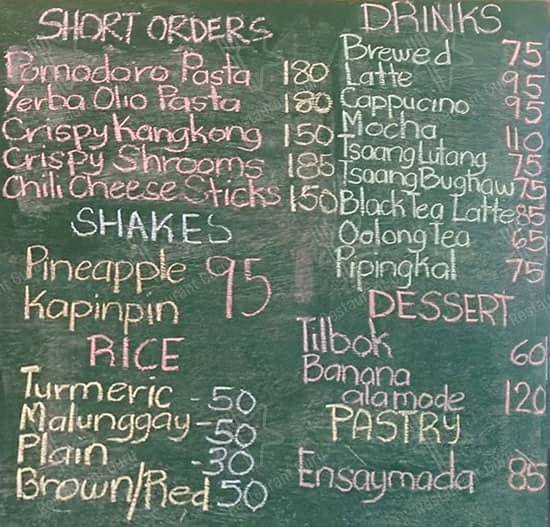 SHORT ORDERS
Pomodoro Pasta 180
Yerba Olio Pasta 180
Crispy Kangkong 150
Crispy Shrooms 185
Chili Cheese Sticks 150
SHAKES
Pineapple 95
Kapinpin
RICE
Turmeric - 50
Malunggay - 50
Plain - 30
Brown/Red 50
DRINKS
Brewed 75
Latte 95
Cappucino 95
Mocha 110
Tsaang Lutang 75
Tsaang Bughaw 75
Black Tea Latte 85
Oolong Tea 65
Pipingkal 75
DESSERT
Tilbok 60
Banana
alamode 120
PASTRY
Ensaymada 85